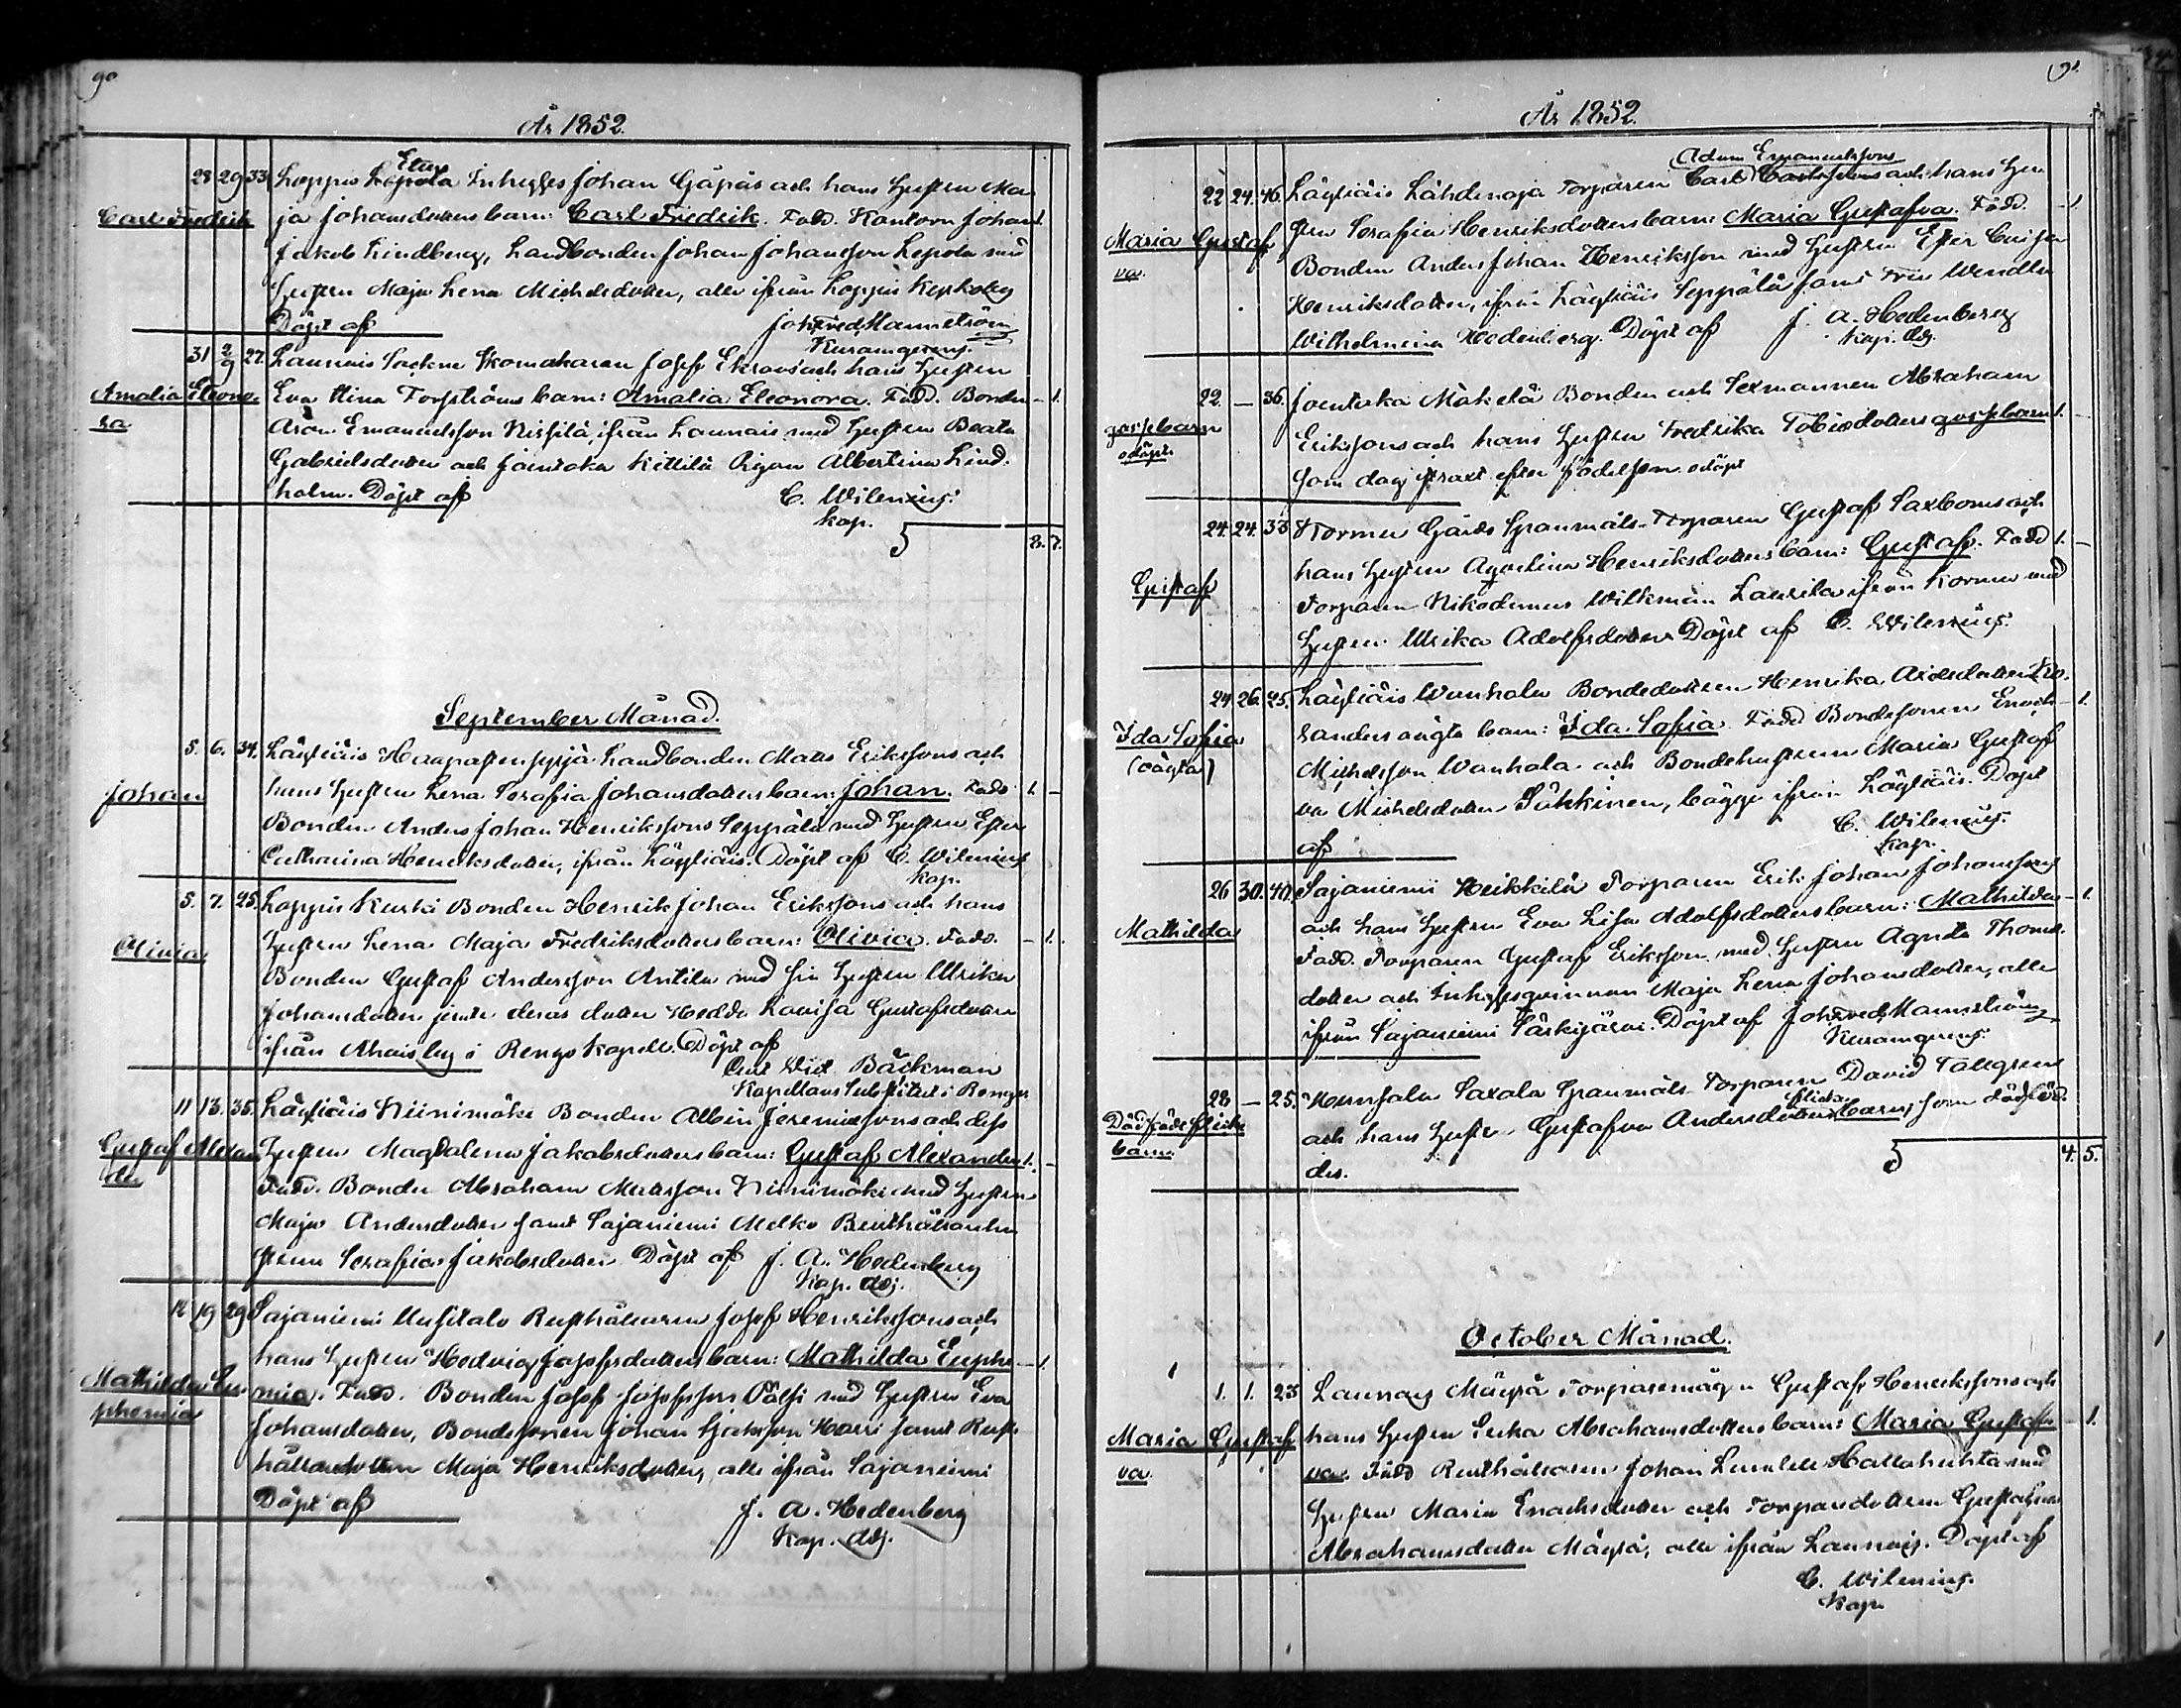 90
År 1852.
Etu
28 29 33 Loppis Lepola Inhyses Johan Gåpås och hans Hustru Ma
Carl Fredrik
ja Johansdotters barn: Carl Fredrik. Fadd. Kantorn Johan 1.
Jakob Lindberg, Landbonden Johan Johansson Lepola med
Hustru Maja Lena Michelsdotter, alle ifrån Loppis Kyrkoby
Döpt af Joh. Fred. Mannström
Kuramgerens.
31 2/9 27. Launois Sackne Skomakaren Josef Ekroos och hans Hustru
Amalia Eleono-
ra
Eva Stina Forsströms barn: Amalia Eleonora. Fadd. Bonden - 1.
Aron Emanuelsson Nissilä, ifrån Launois med Hustru Beata
Gabrielsdotter och Joentaka Kittilä Pigan Albertina Lind-
holm. Döpt af C. Wilenius.
kap.
8. 7.
September Månad.
5. 6. 34. Läyliäis Haapastensyrjä Landbonden Matts Erikssons och
Johan
hans Hustru Lena Serafia Johansdotters barn: Johan. Fadd. 1. -
Bonden Anders Johan Henrikssons Seppälä med Hustru Ester
Catharina Henriksdotter, ifrån Läyliäis. Döpt af C. Wilenius
kap.
5. 7. 25. Loppis Kurki Bonden Henrik Johan Erikssons och hans
Olivia
Hustru Lena Maja Fredriksdotters barn: Olivia. Fadd. - 1.
Bonden Gustaf Andersson Antila med sin Hustru Ulrika
Johansdotter jemte deras dotter Hedda Lovisa Gustafsdotter
ifrån Ahais by i Rengo Kapell. Döpt af
Bäckman
Kapellans Substitut i Rengo
11 13. 35. Läyliäis Niinimäki Bonden Albin Jeremiassons och dess
Gustaf Alexan
der
Hustru Magdalena Jakobsdotters barn: Gustaf Alexander 1. -
Fadd. Bonden Abraham Mattsson Niinimäki med Hustru
Maja Andersdotter samt Sajaniemi Melko Rusthållarehu
strun Serafia Jakobsdotter. Döpt af J. A. Hedenberg
Kap. adj.
19 29 Sajaniemi Uusitalo Rusthållaren Josef Henrikssons och
Mathilda Eu-
phemia
hans Hustru Hedvig Josefsdotters barn: Mathilda Euphe - 1.
mia. Fadd. Bonden Josef Josefsson Pälsi med Hustru Eva
Johansdotter, Bondesonen Johan Isaksson Harri samt Rust-
hållaredottern Maja Henriksdotter, alle ifrån Sajaniemi
Döpt af J. A. Hedenberg
Kap. adj.
91
År 1852.
Adam Emanuelssons
22 24. 46. Läyliäis Lähdenoja Torparen Carl Carlssons och hans Hu
Maria Gustaf
va.
stru Serafia Henriksdotters barn: Maria Gustafva. Fadd. - 1.
Bonden Anders Johan Henriksson med Hustru Ester Caisa
Henriksdotter, ifrån Läyliäis Seppälä samt Fru Wendla
Wilhelmina Hedenberg. Döpt af J. A. Hedenberg
Kap. adj.
22. - 36. Joentaka Mäkelä Bonden och Sexmannen Abraham
gossebarn
odöpt.
Erikssons och hans Hustru Fredrika Tobiasdotters gossebarn 1. -
som dog straxt efter födelsen odöpt
24. 24. 33 Kormu Gårds Spanmåls-Torparen Gustaf Saxboms och
Gustaf
hans Hustru Agatha Henriksdotters barn: Gustaf. Fadd 1. -
Torparen Nikodemus Wilkman Laurila ifrån Kormu med
Hustru Ulrika Adolfsdotter. Döpt af C. Wilenius.
24. 26. 25. Läyliäis Wanhala Bondedottren Henrika
Ida Sofia
(oäkta)
oägta barn: Ida Sofia. Fadd Bondesonen Enoch - 1.
Michelsson Wanhala och Bondehustrun Maria Gustaf
va Michelsdotter Sukkinen, bägge ifrån Läyliäis. Döpt
af C. Wilenius.
kap.
26 30. 40. Sajaniemi Heikkilä Torparen Erik Johan Johanssons
Mathilda
och hans Hustru Eva Lisa Adolfsdotters barn: Mathilda - 1.
Fadd. Torparen Gustaf Eriksson med Hustru Agnita Thomas
dotter och Inhysesqvinnan Maja Lena Johansdotter, alle
ifrån Sajaniemi Särkijärvi. Döpt af Joh. Fred. Mannström
Kuramgerens.
28 - 25. Hunsala Saxala Spanmåls Torparen David Tallgrens
Dödfödt flicke
barn.
och hans Hustru Gustafva Andersdotters flicke barn, som dödföd
des. 4. 5.
October Månad.
1. 1. 23 Launois Mäyrä Torparemågen Gustaf Henrikssons och
Maria Gustaf
va.
hans Hustru Erika Abrahamsdotters barn: Maria Gustaf - 1.
va. Fadd Rusthållaren Johan Hallahuhta med
Hustru Maria Enochsdotter och Torparedottren Gustafva
Abrahamsdotter Mäyrä, alle ifrån Launois. Döpt af
C. Wilenius.
Kap.